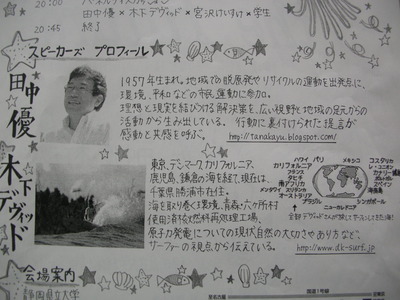 20:00
田中優×木下デヴィッド×宮沢けいすけ×学生
20:45 終了
スピーカーズ プロフィール
田中優
1957年生まれ。地域での脱原発やリサイクルの運動を出発点に、
環境、平和などの市民運動に参加。
理想と現実を結びつける解決策を、広い視野と地域の足元からの
活動から生み出している。行動に裏付けられた提言が
感動と共感を呼ぶ。
http://tanakayu.blogspot.com/
木下デヴィッド
東京、デンマーク、カリフォルニア、
鹿児島、鎌倉の海を経て、現在は、
千葉県勝浦市在住。
海を取り巻く環境、青森・六ヶ所村
使用済核燃料再処理工場、
原子力発電についての現状、自然の大切さやあり方などを、
サーファーの視点から伝えている。
http://www.dk-surf.jp
ハワイ
バリ
カリフォルニア
フランス
タヒチ
南アフリカ
メンタワイ
スリランカ
オーストラリア
メキシコ
コスタリカ
ポルトガル
スペイン
シンガポール
ニューカレドニア
会場案内
静岡県立大学
国道1号線